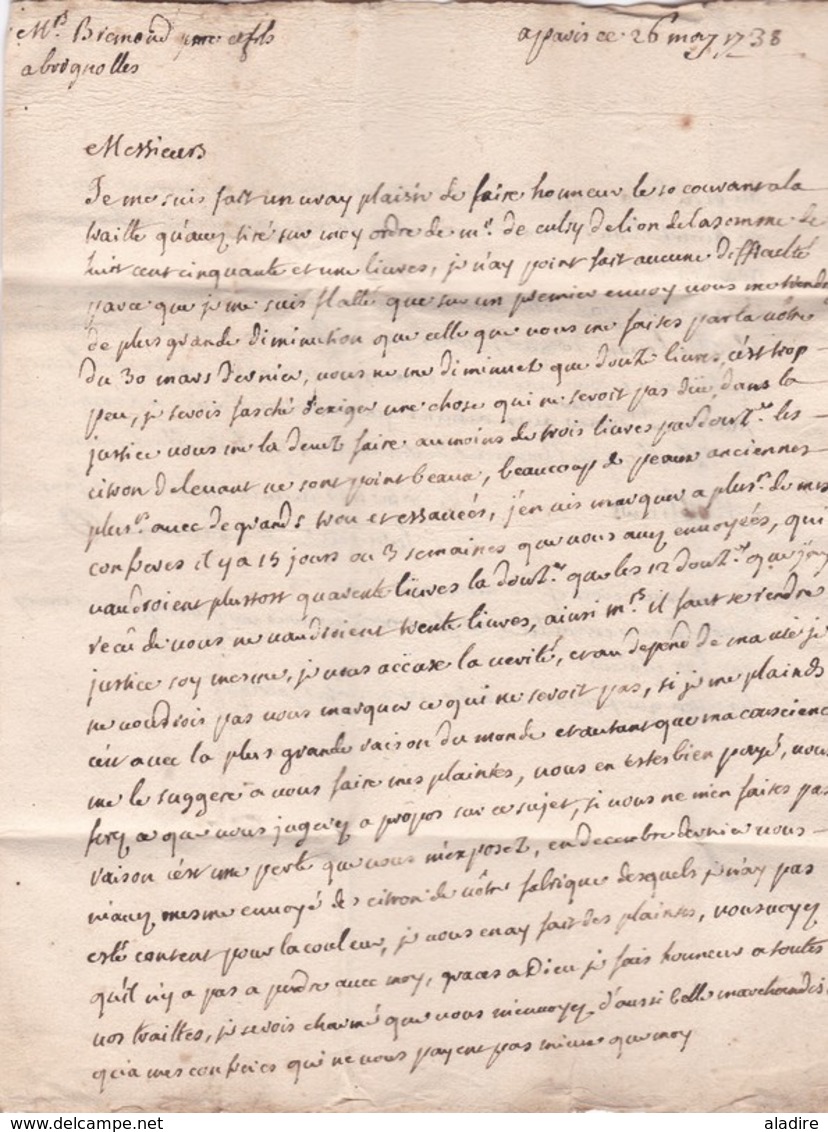 Mrs. Bremond pere et fils
a brignolles
a paris ce 26 may 1738
Messieurs
Je me suis fait un vray plaisir de faire honneur le 10 courant a la
traitte qu'avez tiré sur moy ordre de mr. de de lion de la somme de
huit cent cinquante et une livres, je n'ay point fait aucune difficulté
parce que je me suis flatté que sur un premier envoy vous me
de plus grande diminution que celle que vous me faites par la vôtre
du 30 mars dernier, vous ne me diminuez que douze livres, c'est trop
peu, je serois faché d'exiger une chose qui ne seroit pas düe, dans la
justice vous me la devez faire au moins de trois livres par douz.ne les
citron de levant ne sont point beaux, beaucoup de peaux anciennes
plusrs. avec de grands trou et j'en vais marquer a plusrs. de mes
confreres il y a 15 jours ou 3 semaines que vous avez envoyées, qui
vaudroient plustost quarente livres la douz.ne que les 12 douz.nes que j'ay
recû de vous ne vaudroient trente livres, ainsi mrs. il faut se rendre
justice soy mesme, je vous accuse la verité, et au depend de ma vie je
ne voudrois pas vous marquer ce qui ne seroit pas, si je me plainds
c'est avec la plus grande raison du monde et autant que ma conscience
me le suggere a vous faire mes plaintes, vous en estes bien payé, vous
ferez ce que vous jugerez a propos sur ce sujet, si vous ne m'en faites pas
raison c'est une perte que vous m'exposez, en decembre dernier vous
m'avez mesme envoyé des citron de vôtre fabrique desquels je n'ay pas
esté content pour la couleur, je vous en ay fait des plaintes, vous voyez
qu'il n'y a pas a perdre avec moy, graces a Dieu je fais honneur a toutes
vos traittes, je serois charmé que vous m'envoyez d'aussi belle marchandise
qu'a mes confreres qui ne vous payent pas mieux que moy